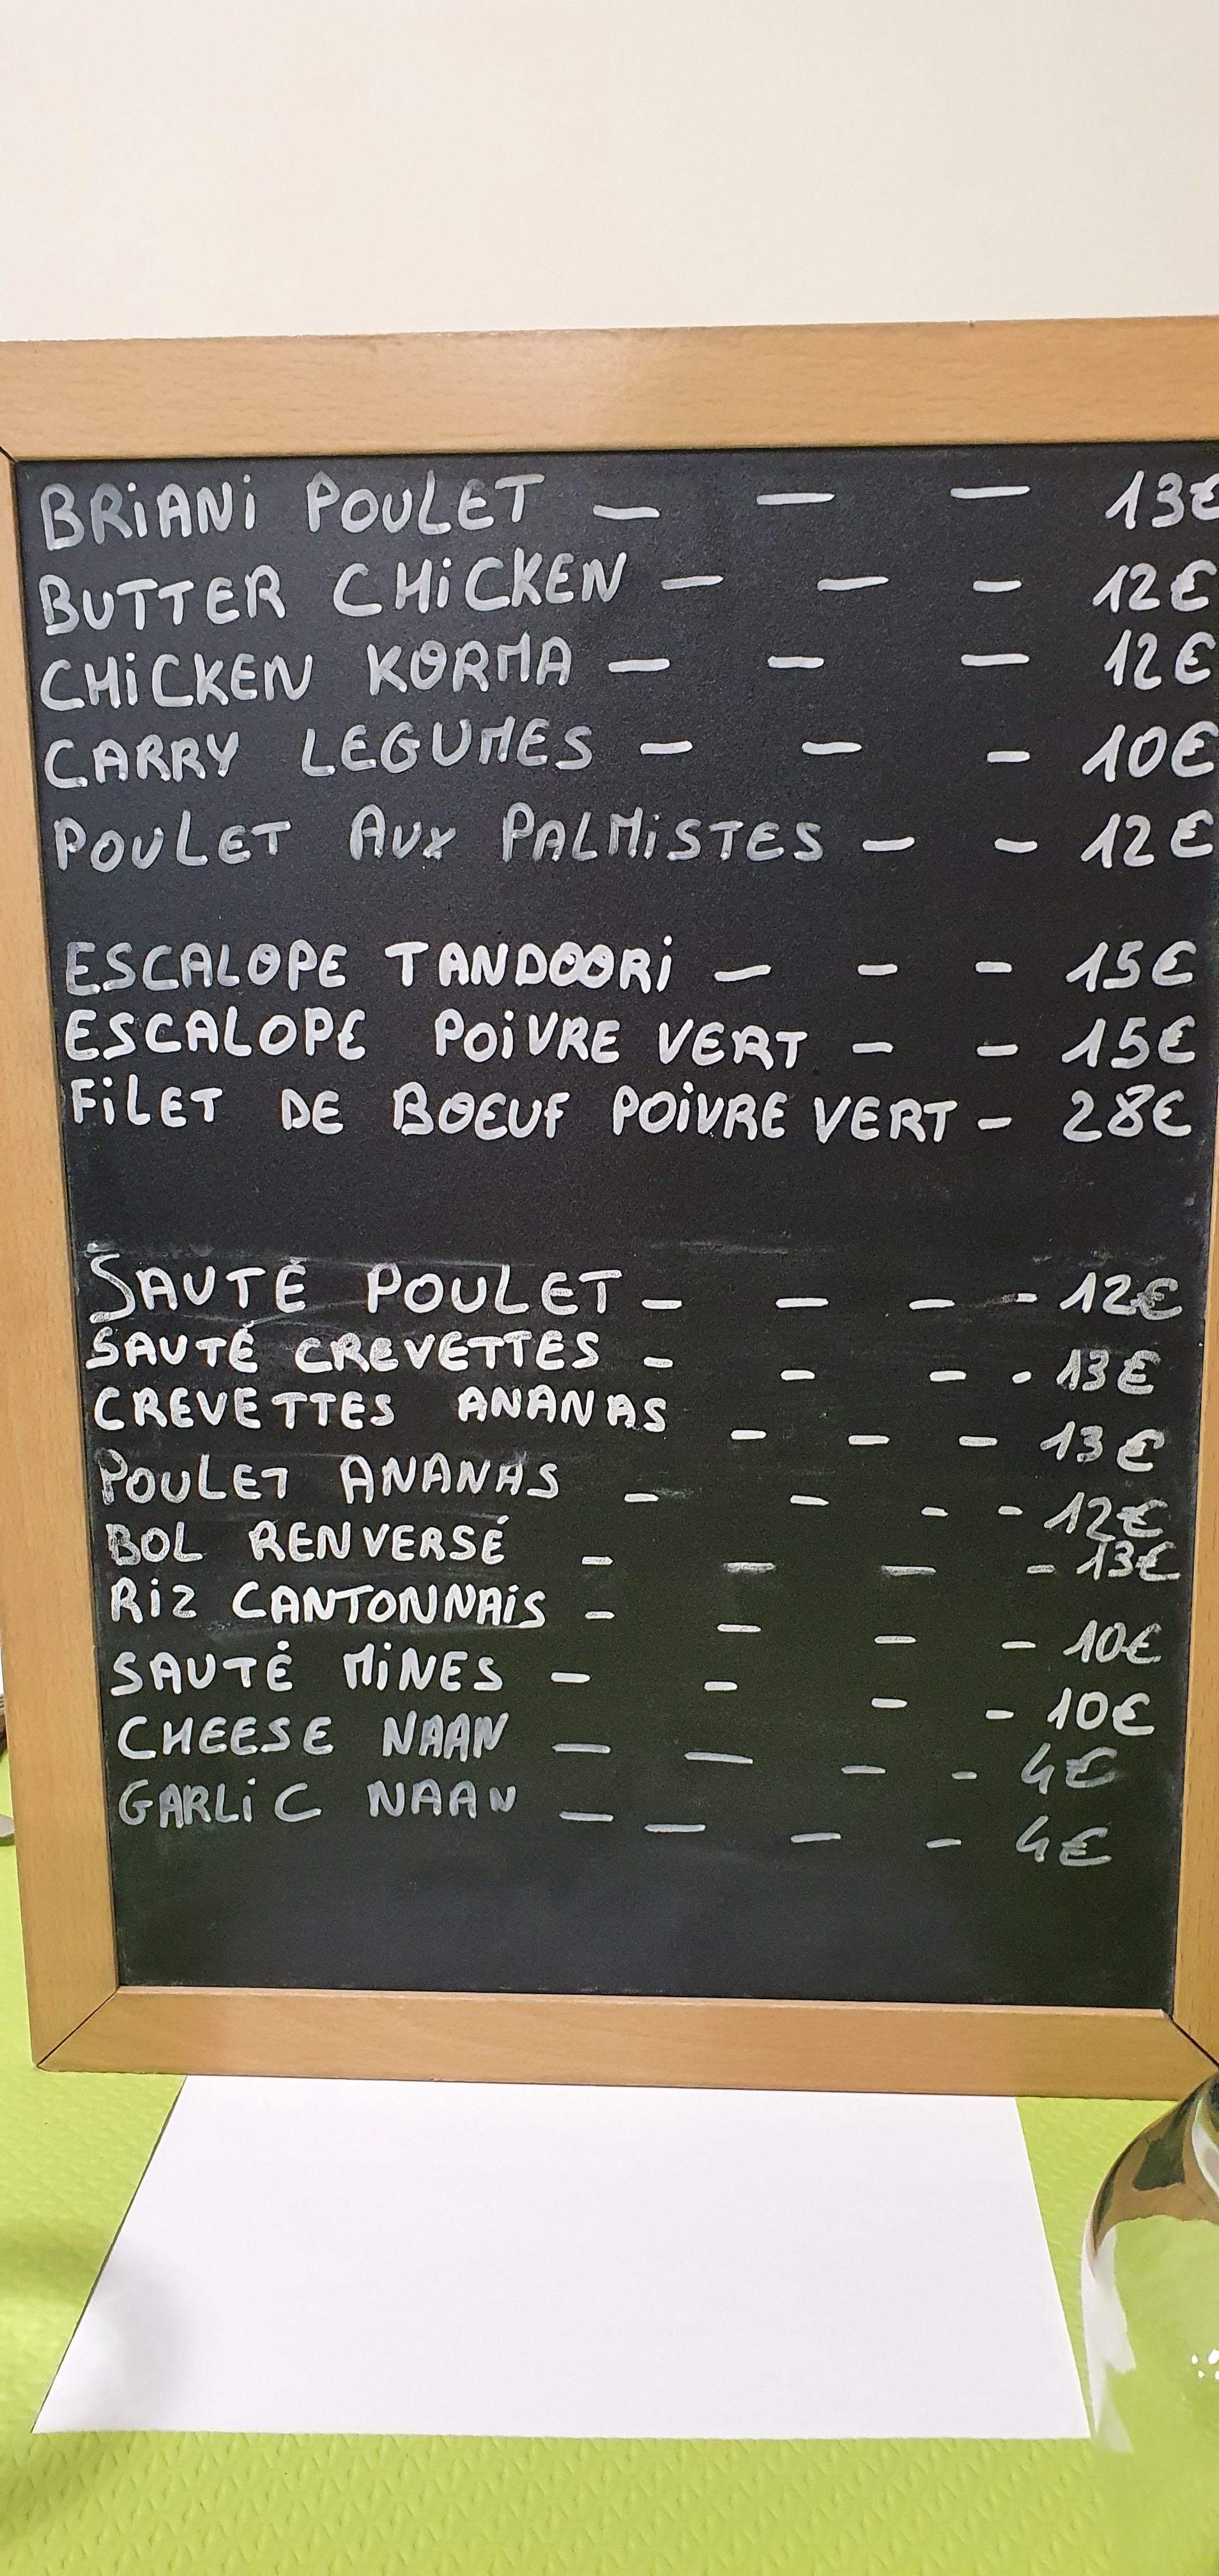 BRiANi POULET — — — 13€
BUTTER CHiCKEN — — — 12€
CHiCKEN KORMA — — — 12€
CARRY LEGUMES — — — 10€
POULET AUX PALMiSTES — — 12€
ESCALOPE TANDOORi — — — 15€
ESCALOPE POiVRE VERT — — 15€
FiLET DE BOEUF POiVRE VERT — 28€
SAUTÉ POULET — — — — 12€
SAUTÉ CREVETTES — — — - 13€
CREVETTES ANANAS — — — 13€
POULET ANANAS — — — — 12€
BOL RENVERSÉ — — — — 13€
RiZ CANTONNAiS — — — — 10€
SAUTÉ MiNES — — — — 10€
CHEESE NAAN — — — — 4€
GARLiC NAAN — — — — 4€